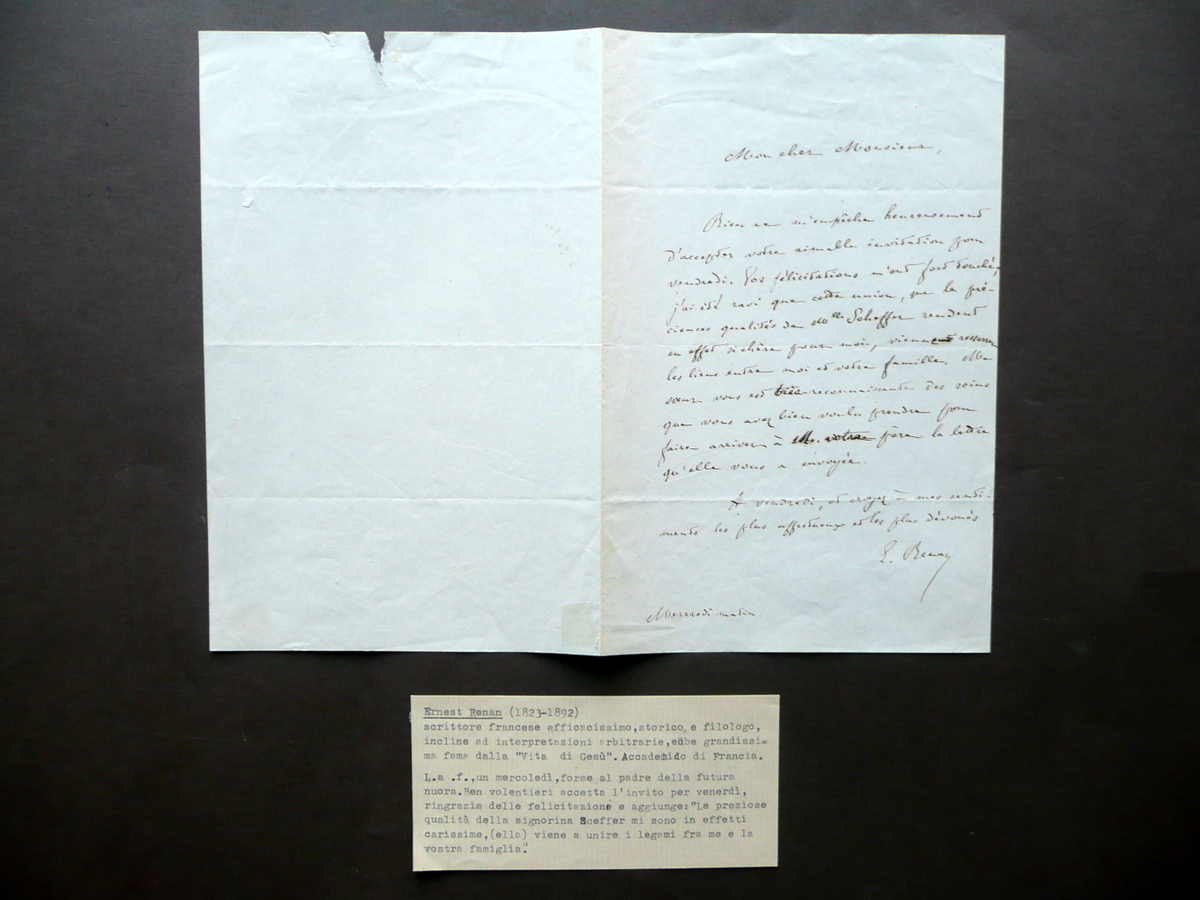 Mon cher Monsieur,
Rien ne m'empêche heureusement
d'accepter votre aimable invitation pour
vendredi. Vos félicitations m'ont fort touché,
j'ai été ravi que cette union, que la pré-
cieuses qualités de Mlle Scheffer rendent
en effet si chère pour moi, vienne resserrer
les liens entre moi et votre famille. Ma
sœur vous est très reconnaissante des soins
que vous avez bien voulu prendre pour
faire arriver à M. votre père la lettre
qu'elle vous a envoyée.
A vendredi, et croyez à mes senti-
ments les plus affectueux et les plus dévoués
E. Renan
Mercredi matin
Ernest Renan (1823-1892)
scrittore francese efficacissimo, storico e filologo,
incline ad interpretazioni arbitrarie, ebbe grandissi=
ma fama dalla "Vita di Gesù". Accademido di Francia.
L.a .f.,un mercoledì,forse al padre della futura
nuora.Ben volentieri accetta l'invito per venerdì,
ringrazia delle felicitazione e aggiunge:"Le preziose
qualità della signorina Sceffer mi sono in effetti
carissime,(ella) viene a unire i legami fra me e la
vostra famiglia."